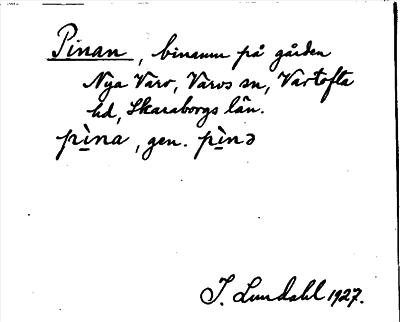 Pinan, binamn på gården
Nya Varv, Varvs sn, Vartofta
hd, Skaraborgs län.
pìna, gen. pìnə
I. Lundahl 1927.